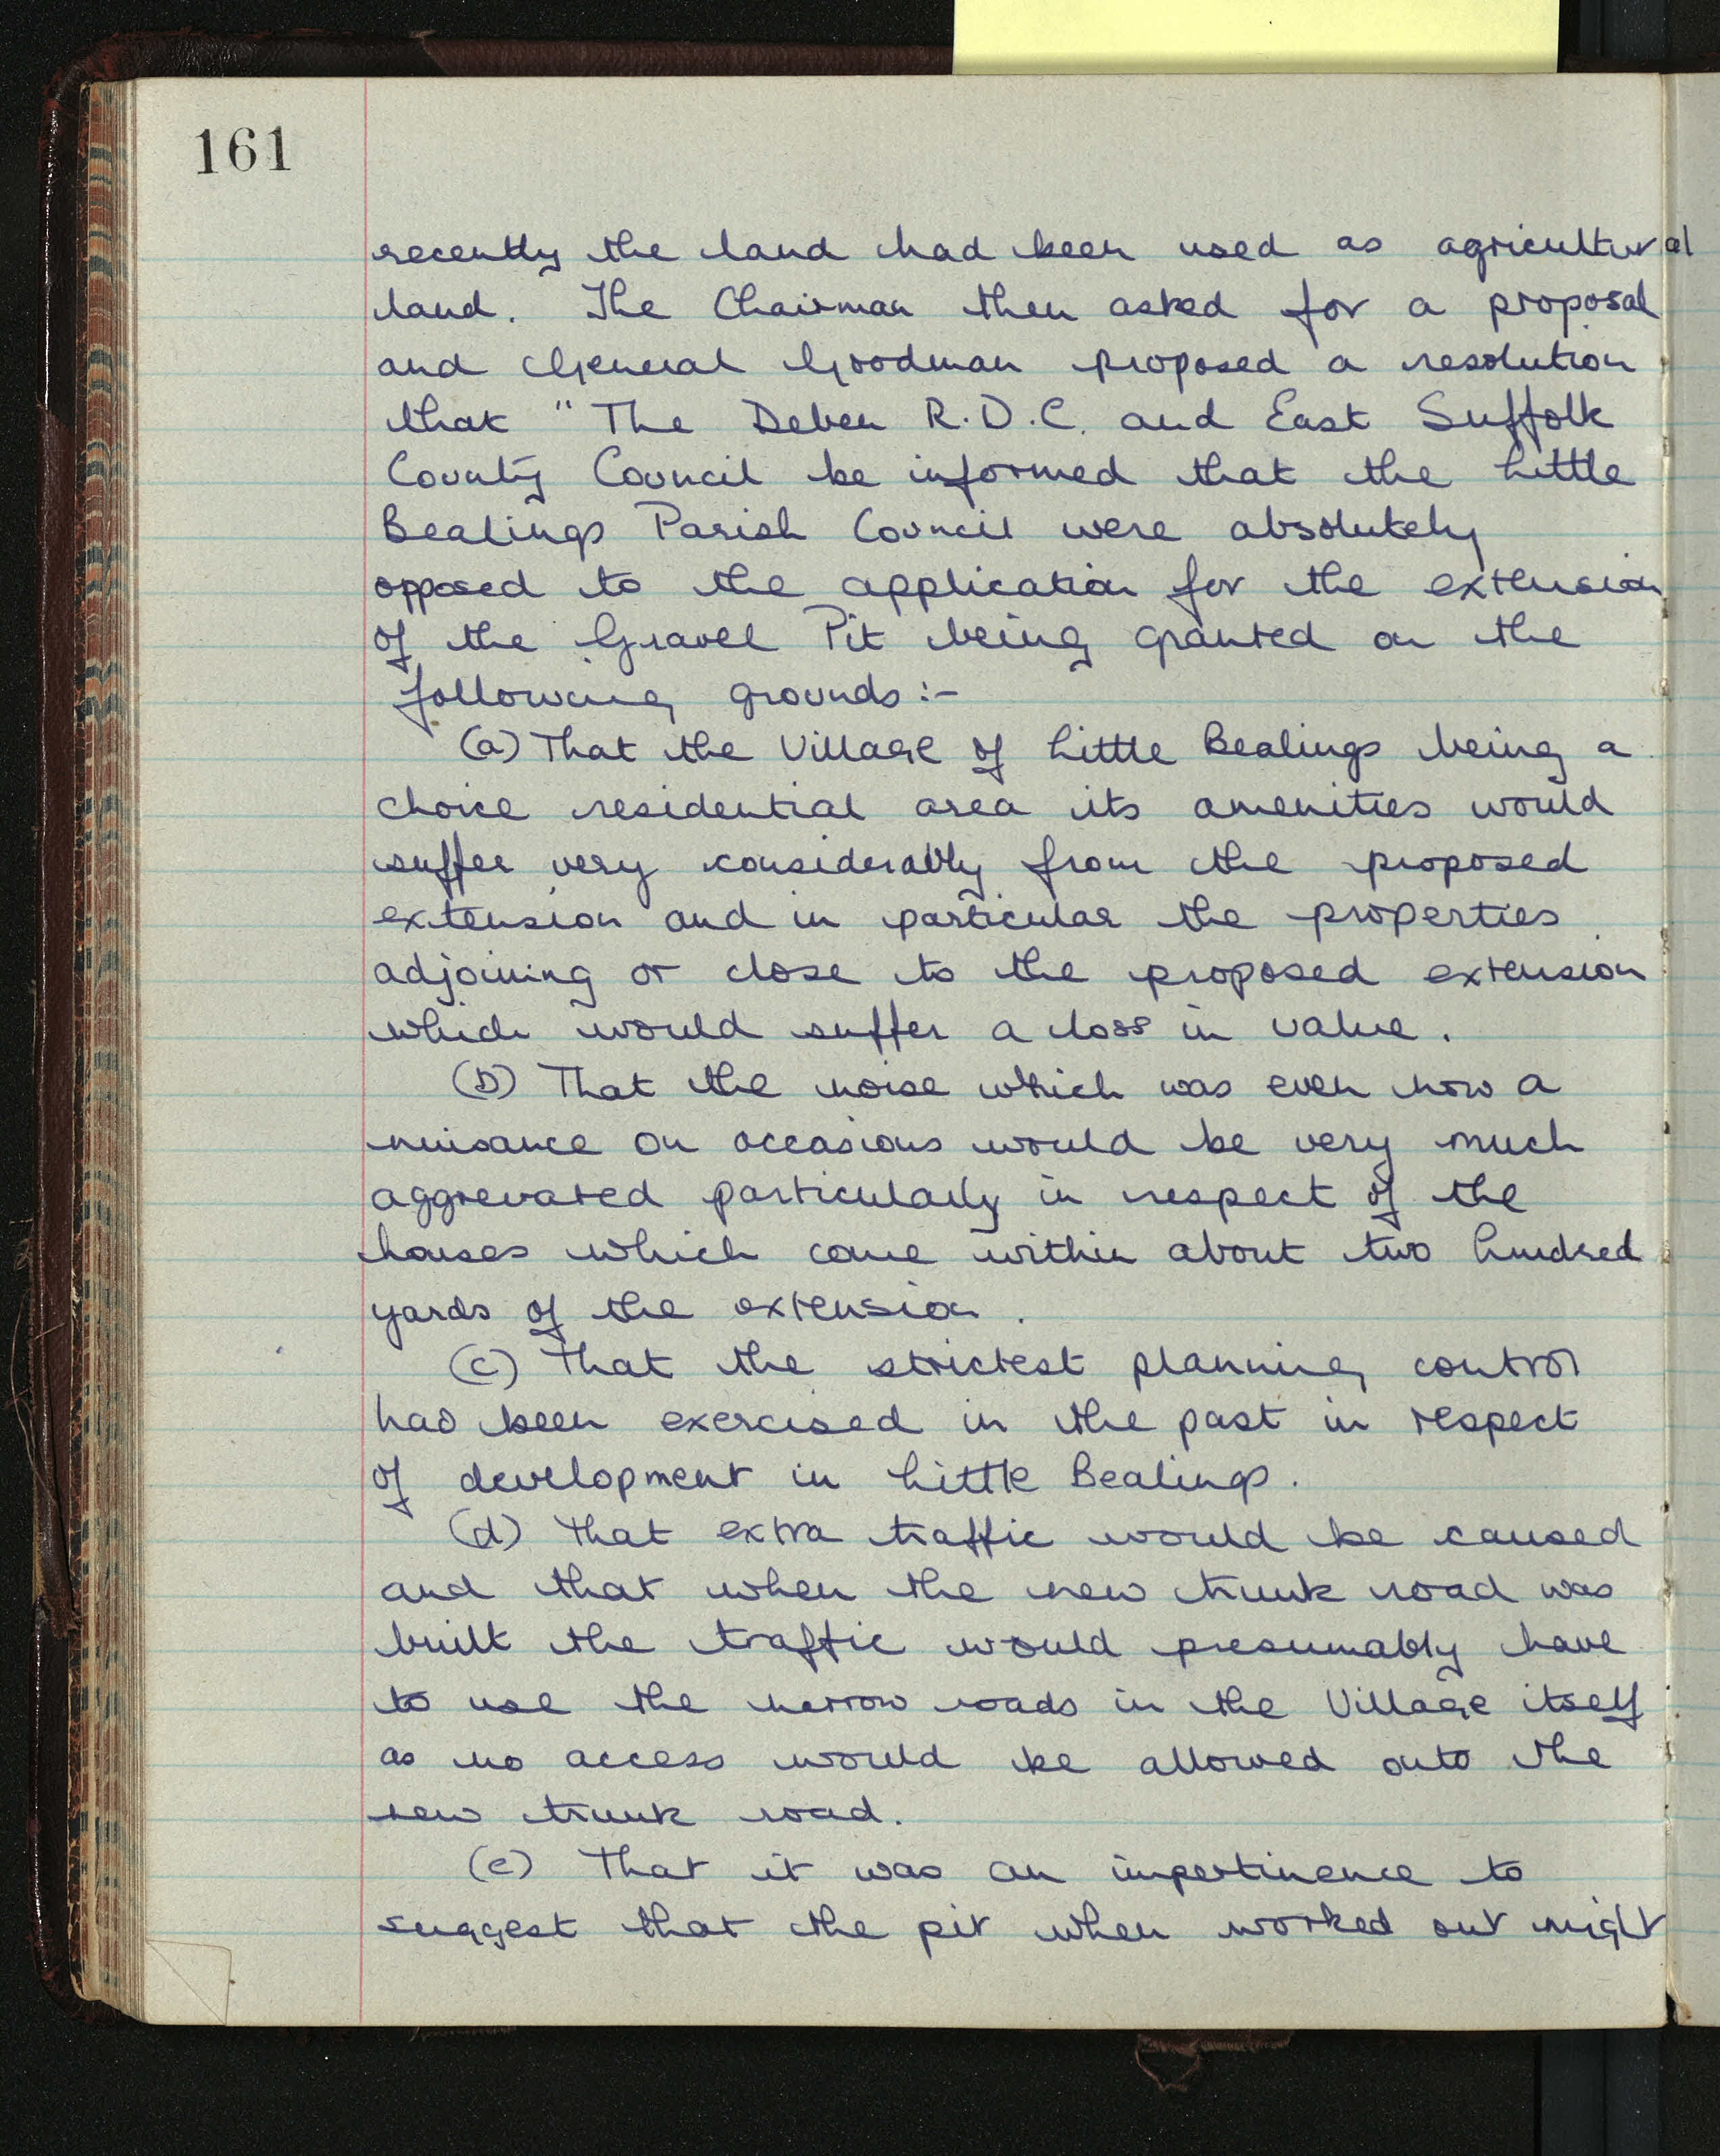 161
recently the land had been used as agricultural
land. The Chairman then asked for a proposal
and General Goodman proposed a resolution
that " The Deben R.D.C. and East Suffolk
County Council be informed that the Little
Bealings Parish Council were absolutely
opposed to the application for the extension
of the Gravel Pit being granted on the
following grounds:-
(a) That the Village of Little Bealings being a
choice residential area its amenities would
suffer very considerably from the proposed
extension and in particular the properties
adjoining or close to the proposed extension
which would suffer a loss in value.
(b) That the noise which was even now a
nuisance on occasions would be very much
aggrevated particularly in respect of the
houses which come within about two hundred
yards of the extension.
(c) That the strictest planning control
had been exercised in the past in respect
of development in Little Bealings.
(d) That extra traffic would be caused
and that when the new trunk road was
built the traffic would presumably have
to use the narrow roads in the Village itself
as no access would be allowed onto the
new trunk road.
(e) That it was an impertinence to
suggest that the pit when worked out might